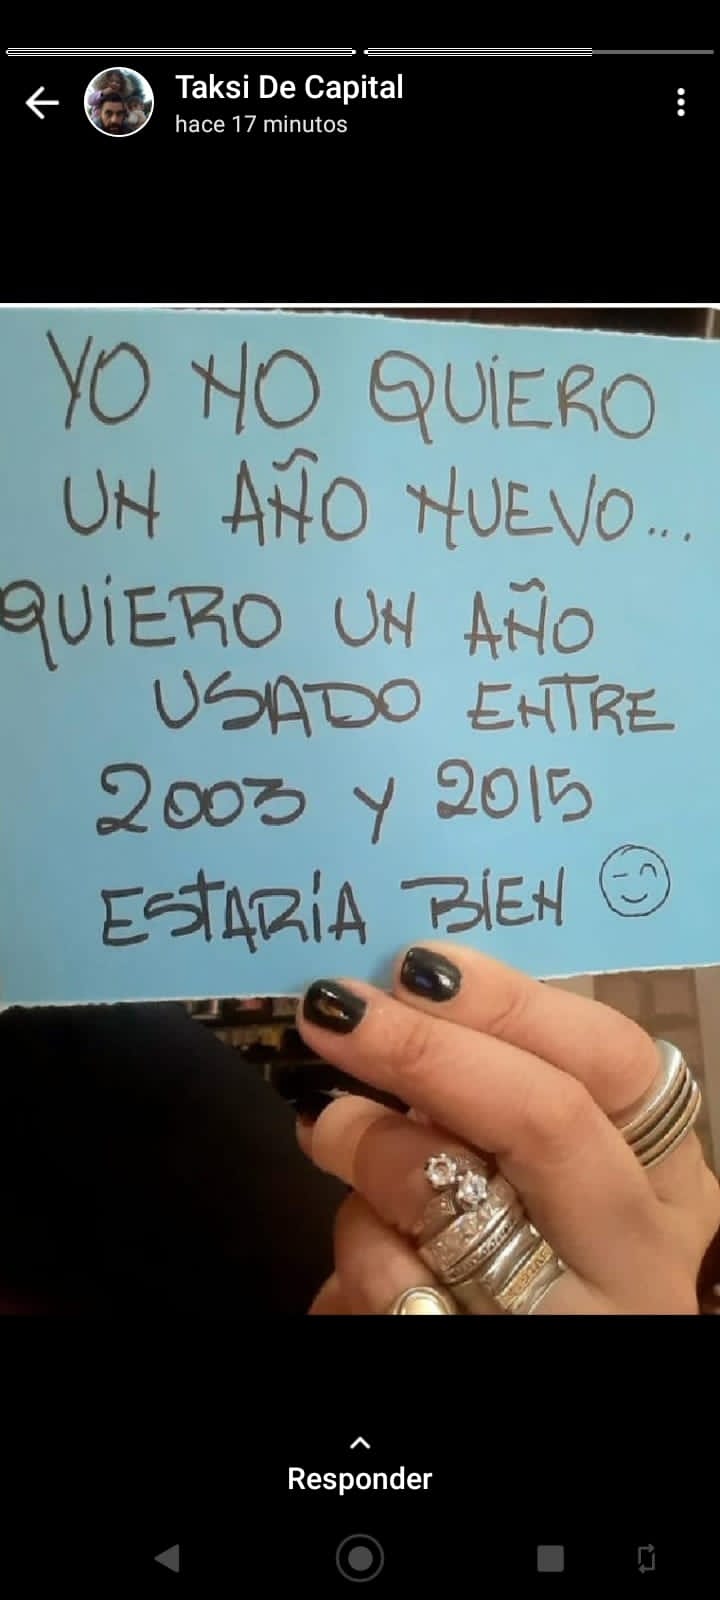 Taksi De Capital
hace 17 minutos
YO NO QUIERO
UN AÑO NUEVO...
QUIERO UN AÑO
USADO ENTRE
2003 Y 2015
ESTARÍA BIEN
Responder